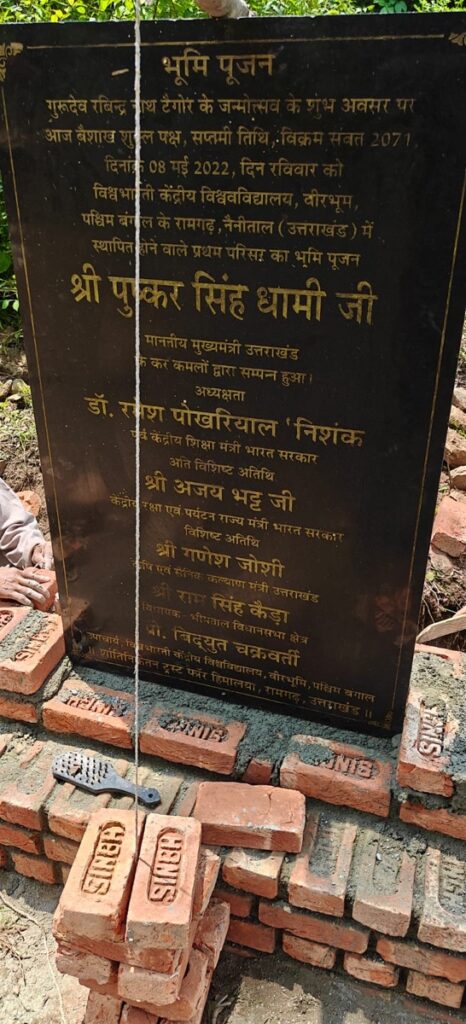 भूमि पूजन
गुरूदेव रबिन्द्र नाथ टैगोर के जन्मोत्सव के शुभ अवसर पर
आज बैशाख शुक्ल पक्ष, सप्तमी तिथि, विक्रम संवत 2071
दिनांक 08 मई 2022, दिन रविवार को
विश्वभारती केंद्रीय विश्वविद्यालय, वीरभूम,
पश्चिम बंगाल के रामगढ़, नैनीताल (उत्तराखंड) में
स्थापित होने वाले प्रथम परिसर का भूमि पूजन
श्री पुष्कर सिंह धामी जी
माननीय मुख्यमंत्री उत्तराखंड
के कर कमलों द्वारा सम्पन्न हुआ।
अध्यक्षता
डॉ. रमेश पोखरियाल 'निशंक
पूर्व केंद्रीय शिक्षा मंत्री भारत सरकार
अति विशिष्ट अतिथि
श्री अजय भट्ट जी
केंद्रीय रक्षा एवं पर्यटन राज्य मंत्री भारत सरकार
विशिष्ट अतिथि
श्री गणेश जोशी
कृषि एवं सैनिक कल्याण मंत्री उत्तराखंड
श्री राम सिंह कैड़ा
विधायक- भीमताल विधानसभा क्षेत्र
प्रो. बिद्युत चक्रवर्ती
उपाचार्य, विश्वभारती केंद्रीय विश्वविद्यालय, वीरभूमि, पश्चिम बंगाल
॥ शांतिनिकेतन ट्रस्ट फॉर हिमालया, रामगढ़, उत्तराखंड ॥
SINBH
SINBH